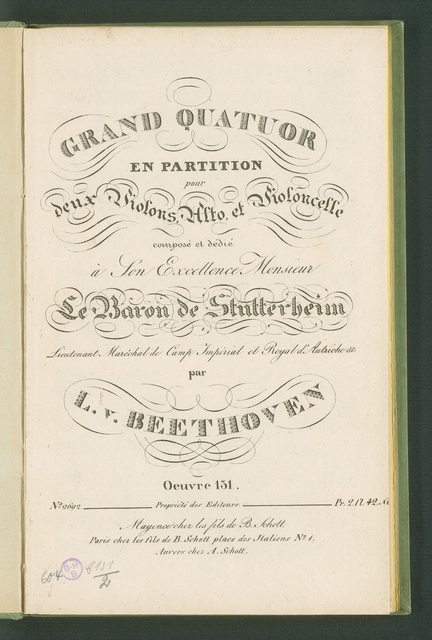 GRAND QUATUOR
EN PARTITION
pour
deux Violons, Alto, et Violoncelle
composé et dédié
à Son Excellence Monsieur
Le Baron de Stutterheim
Lieutenant Maréchal de Camp Impérial et Royal d'Autriche &c
par
L. v. BEETHOVEN
Oeuvre 131.
No 2692. Propriété des Editeurs. Pr. 2 fl. 42
Mayence chez les fils de B. Schott.
Paris chez les fils de B. Schott place des Italiens No 1.
Anvers chez A. Schott.